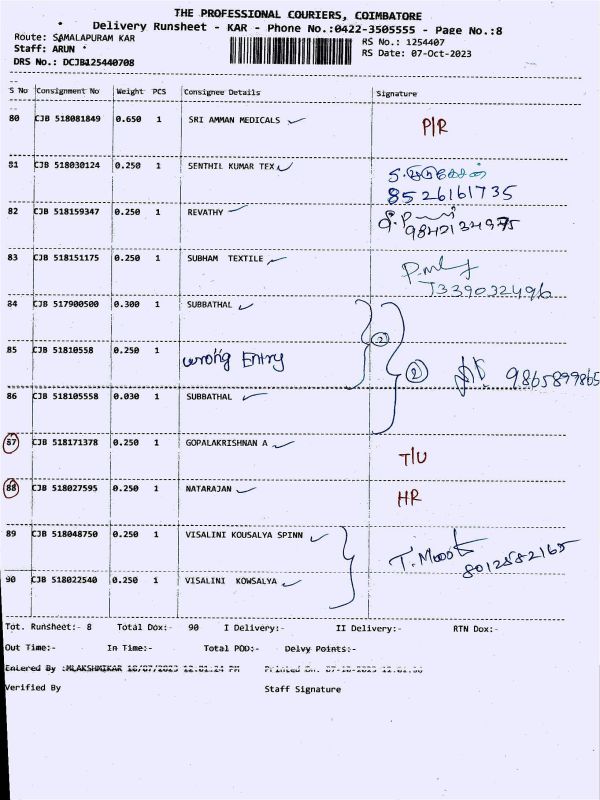 THE PROFESSIONAL COURIERS, COIMBATORE
Delivery Runsheet - KAR - Phone No.:0422-3505555 - Page No.:8
Route: SAMALAPURAM KAR
RS No.: 1254407
Staff: ARUN
RS Date: 07-Oct-2023
DRS No.: DCJB125440708
S No Consignment No Weight PCS Consignee Details Signature
80 CJB 518081849 0.650 1 SRI AMMAN MEDICALS P/R
81 CJB 518030124 0.250 1 SENTHIL KUMAR TEX
8526161735
82 CJB 518159347 0.250 1 REVATHY
9842134975
83 CJB 518151175 0.250 1 SUBHAM TEXTILE
84 CJB 517900500 0.300 1 SUBBATHAL
2
85 CJB 51810558 0.250 1 wrong Entry
2 9865899865
86 CJB 518105558 0.030 1 SUBBATHAL
87 CJB 518171378 0.250 1 GOPALAKRISHNAN A
T/U
88 CJB 518027595 0.250 1 NATARAJAN HR
89 CJB 518048750 0.250 1 VISALINI KOUSALYA SPINN
8012582165
90 CJB 518022540 0.250 1 VISALINI KOWSALYA
Tot. Runsheet:- 8 Total Dox:- 90 I Delivery:- II Delivery:- RTN Dox:-
Out Time:- In Time:- Total POD:- Delvy Points:-
Entered By :MLAKSHMIKAR 10/07/2023 12:01:24 PM
Verified By Staff Signature